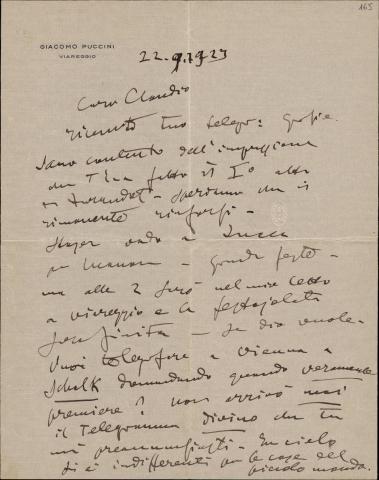 165
GIACOMO PUCCINI
VIAREGGIO
22.9.1923
Caro Claudio
ricevuto tuo telegr: grazie.
Sono contento dell'impressione
che t'ha fatto il I° atto
di Turandot - Speriamo che il
rimanente rinforzi -
Stasera vado a Lucca
per Manon - grande festa -
ma alle 2 sarò nel mio letto
a Viareggio e la
finita - se dio vuole -
Vuoi telegrafare a Vienna a
Schalk domandando quando veramente
première? non arrivò mai
il Telegramma divino che tu
mi preannunziasti - In cielo
si è indifferenti per le cose del
piccolo mondo.